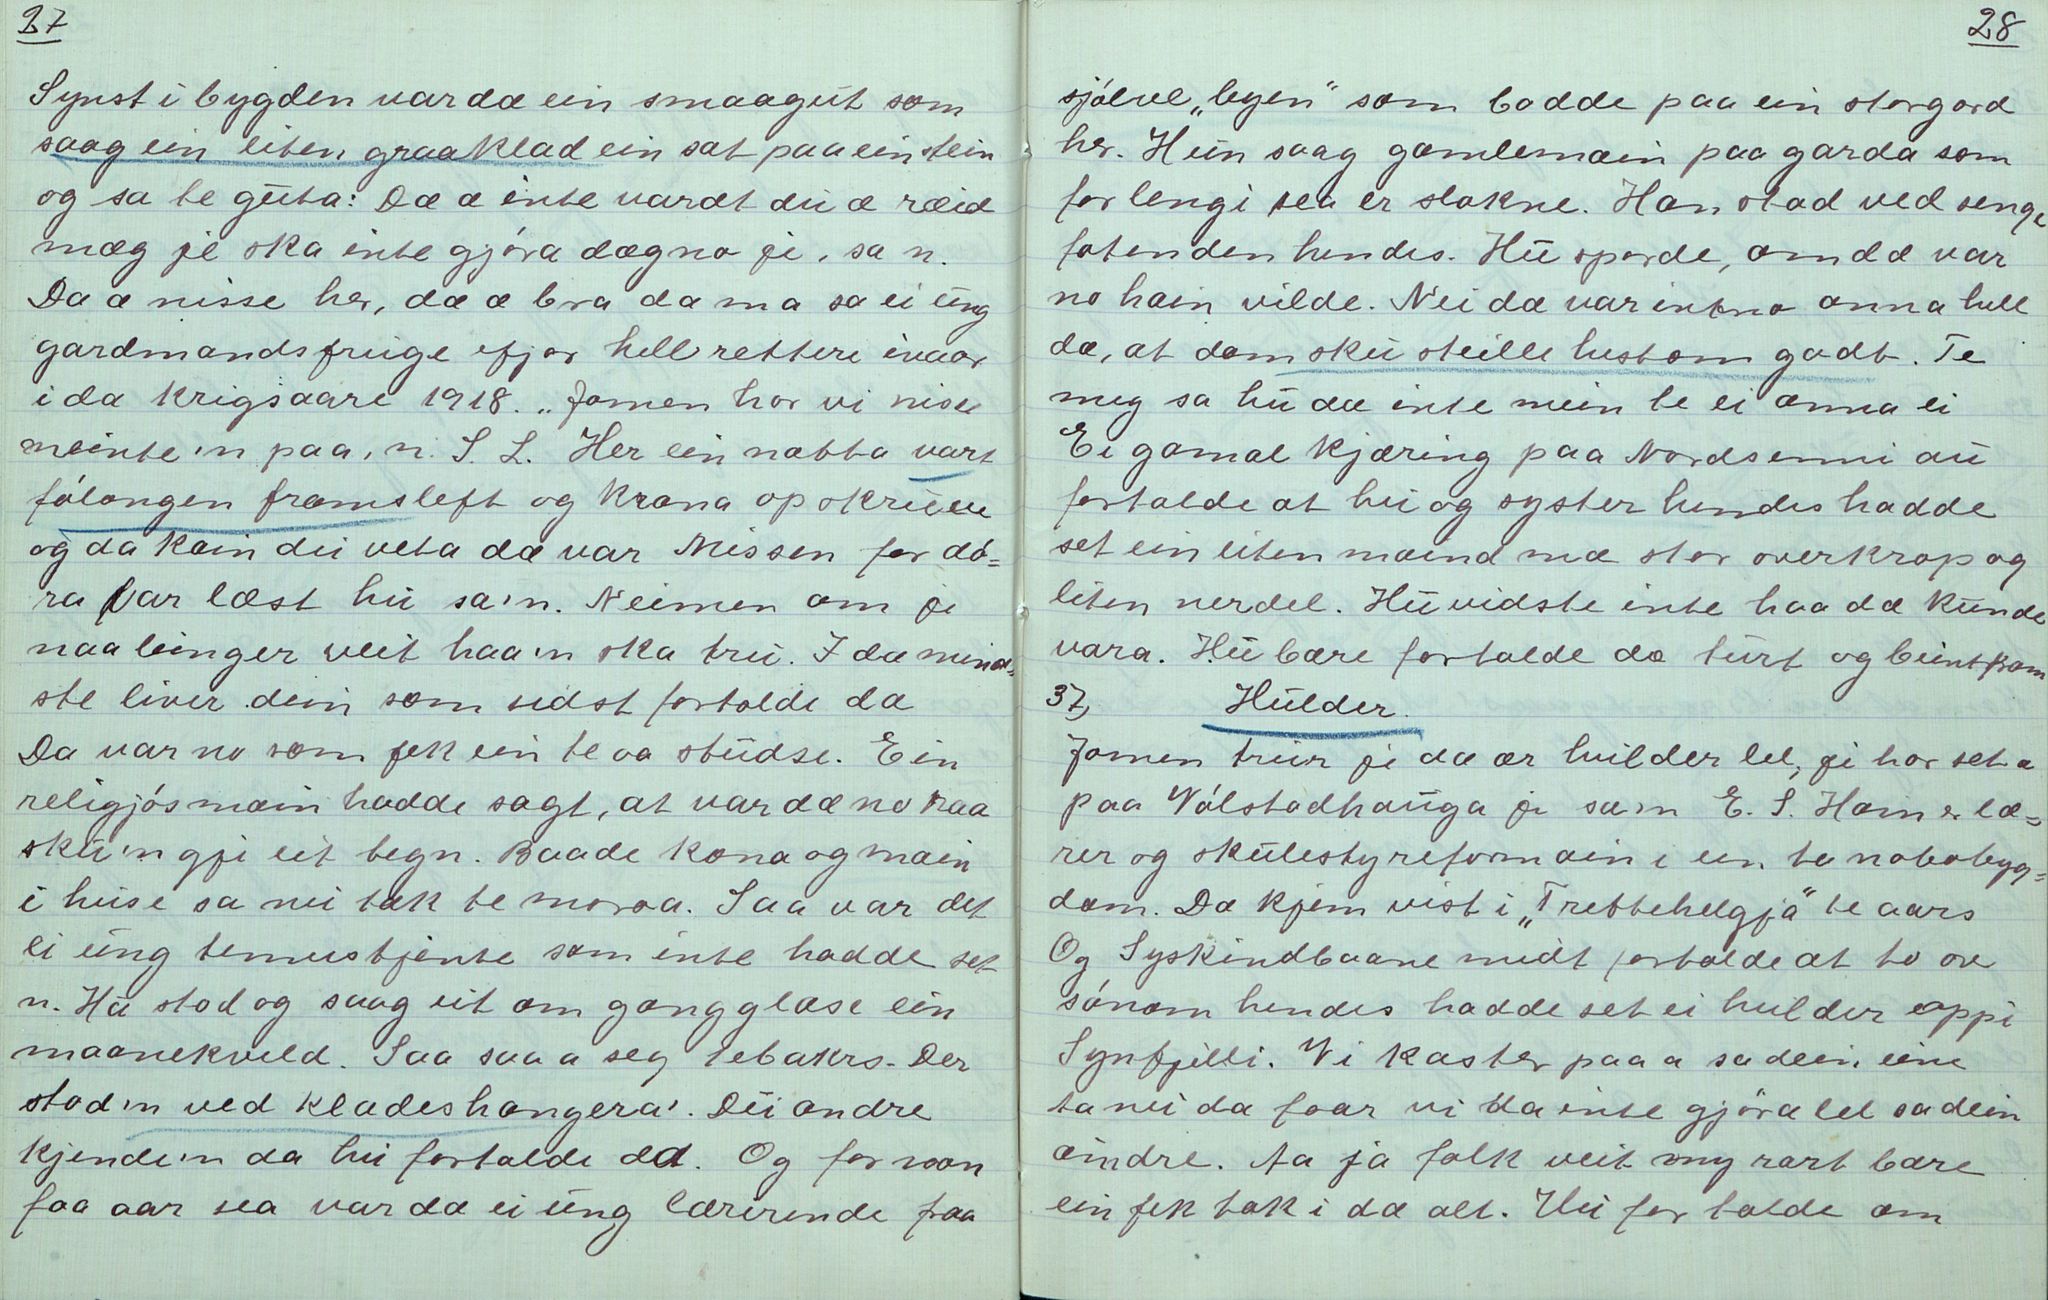 27
Synst i bygden var dæ ein smaagut som
saag ein liten graaklad ein sat paa ein stein
og sa te guta: Dæ æ inte vardt du æ ræid
mæg je ska inte gjóra dægno je, sa n.
Da æ nisse her, dæ æ bra da ma sa ei ung
gardmandsfruige ifjor hell rettere ivaar
i da krigsaare 1918. „Jamen har vi nisse
meinte'n paa, n. S. L. Her ein natta vart
fólongen framsleft og krana opskruve
og da kain du veta dæ var Nissen for dó-
ra var læst hu sa'n. Neimen om je
naa leinger veit haa'n ska tru. I da mind-
ste liver dein som sidst fortalde da
Da var no som fek ein te aa studse. Ein
religjós main hadde sagt, at var dæ no raa
sku'n gje eit tegn. Baade kona og main
i huse sa nei tak te moroa. Saa var det
ei ung temustjente som inte hadde set
n. Hu stod og saag ut om gangglase ein
maanekveld. Saa saa a seg tebakrs. Der
stod'n ved kladeshangera'. Dei andre
kjende'n da hu fortalde dd. Og for noon
faa aar sea var dæ ei ung lærerinde fraa
28
sjólve „byen" som bodde paa ein storgard
her. Hun saag gamlemain paa garda som
for lengi sea er slokne. Han stod ved senge
fotenden hendes. Hu sporde, om dæ var
no hain vilde. Nei dæ var intno anna hell
dæ, at dam sku steille hestom godt. Te
meg sa hu dæ inte mein te ei anna ei
Ei gamal kjæring paa Nordsinni au
fortalde at hu og syster hendes hadde
set ein liten maind mæ stor overkrop og
liten nerdel. Hu vidste inte haa dæ kunde
vara. Hu bære fortalde da turt og beint fram
37, Hulder.
Jamen trur je dæ ær hulder lel, je har set a
paa Vólstadhauga je sa'n E. S. Hain er læ-
rer og skulestyreformain i ein ta nabobyg-
dom. Da kjem vist i „Trettehelgja" te aars
Og Syskindbaane midt fortalde at to av
sónom hendes hadde set ei hulder oppi
Synfjelli. Vi kaster paa a sa dein eine
ta nei da faar vi da inte gjóra lel sa dein
aindre. Aa ja folk veit my rart bære
ein fek tak i dæ alt. Hu fortalde om